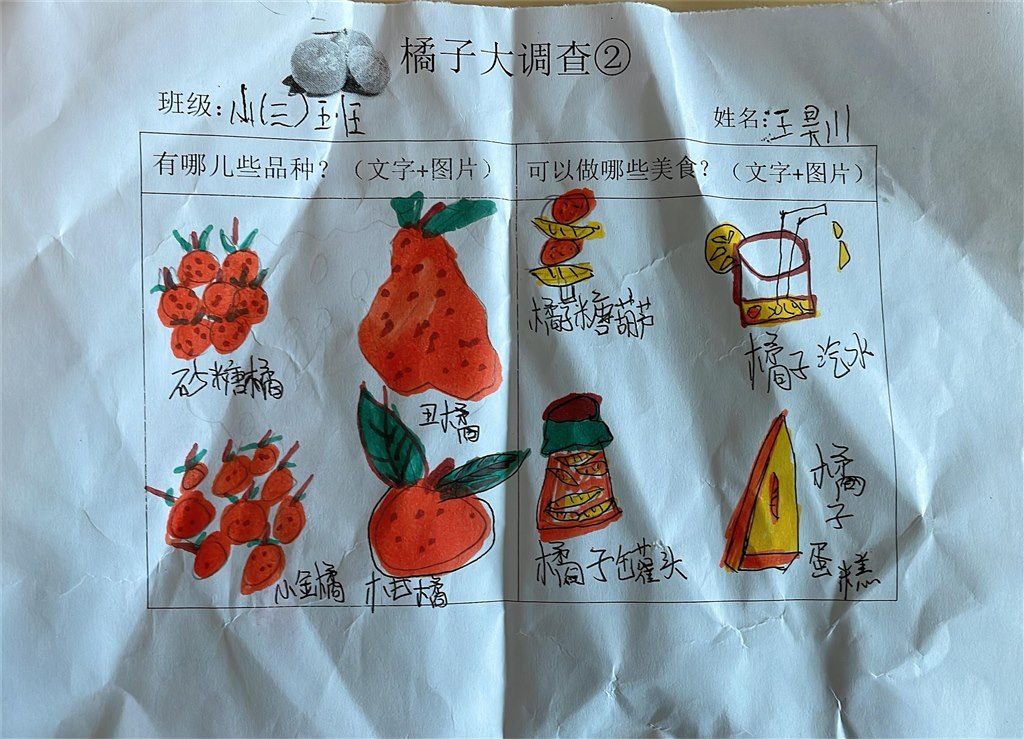 橘子大调查②
班级:小(三)班
姓名:汪昊川
有哪儿些品种？（文字+图片）
可以做哪些美食？（文字+图片）
砂糖橘
丑橘
小金橘
柑橘
橘子糖葫芦
橘子汽水
橘子罐头
橘子
蛋糕